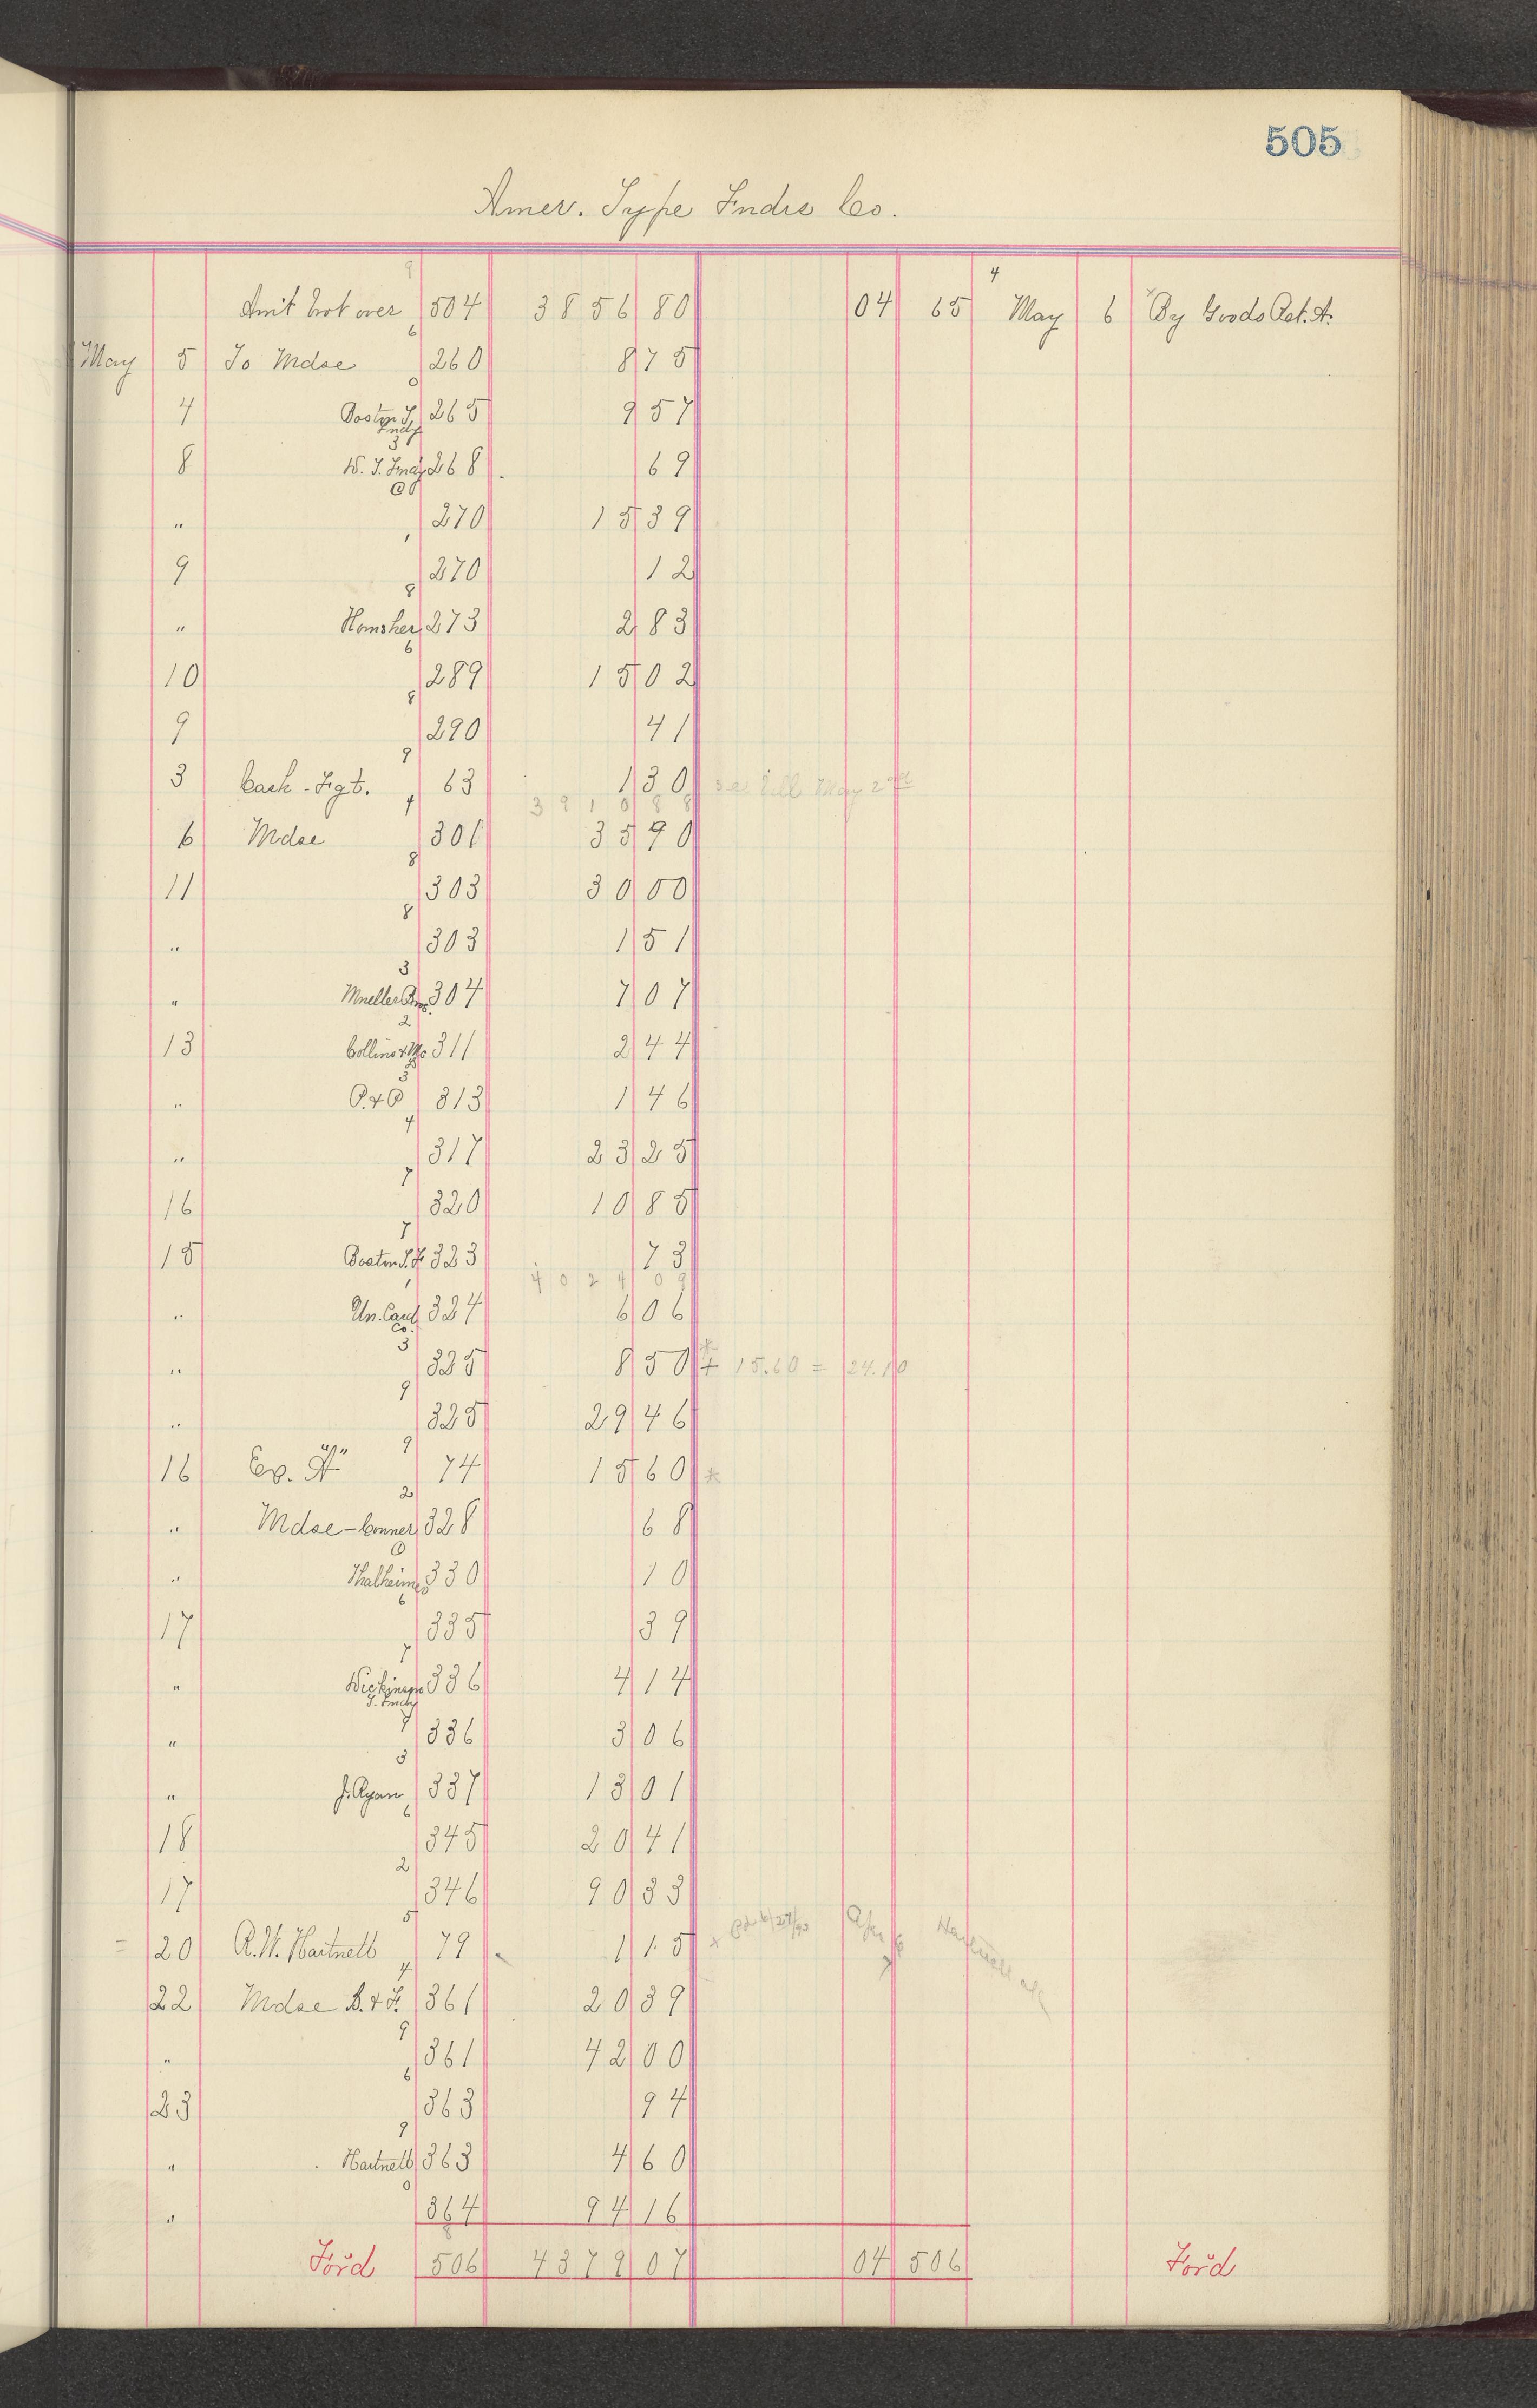 505
Amer. Type Fndrs Co.
9
Amt brot over 504 3856 80 04 65 4 May 6 By Goods Ret. A.
6
May 5 To Mdse 260 8 75
0
4 Boston T. Fndy 265 9 57
3
8 W. T. Fndy 268 69
Co 0
" 270 15 39
1
9 270 12
8
" Homsher 273 2 83
6
10 289 15 02
8
9 290 41
9
3 Cash - Fgt. 63 1 30 see bill May 2nd
4 3910 88
6 Mdse 301 35 90
8
11 303 30 00
8
" 303 1 51
3
" Mueller Bros. 304 7 07
2
13 Collins & Mc 311 2 44
3
" P. & P 313 1 46
4
" 317 23 25
7
16 320 10 85
7
15 Boston T. F. 323 73
1 4024 09
" Un. Card Co. 324 6 06
3
" 325 8 50 + 15.60 = 24.10
9
" 325 29 46
9
16 Exp. "A" 74 15 60 *
2
" Mdse - Conner 328 68
0
" Thalheimer 330 10
6
17 335 39
7
" Dickinson T. Fndy 336 4 14
7
" 336 3 06
3
" J. Ryan 337 13 01
6
18 345 20 41
2
17 346 90 33
5
20 R.W. Hartnett 79 1 15 x Hartnett
4
22 Mdse B. & F. 361 20 39
9
" 361 42 00
6
23 363 94
9
" Hartnett 363 4 60
0
" 364 94 16
Ford 506 4379 07 04 506 Ford